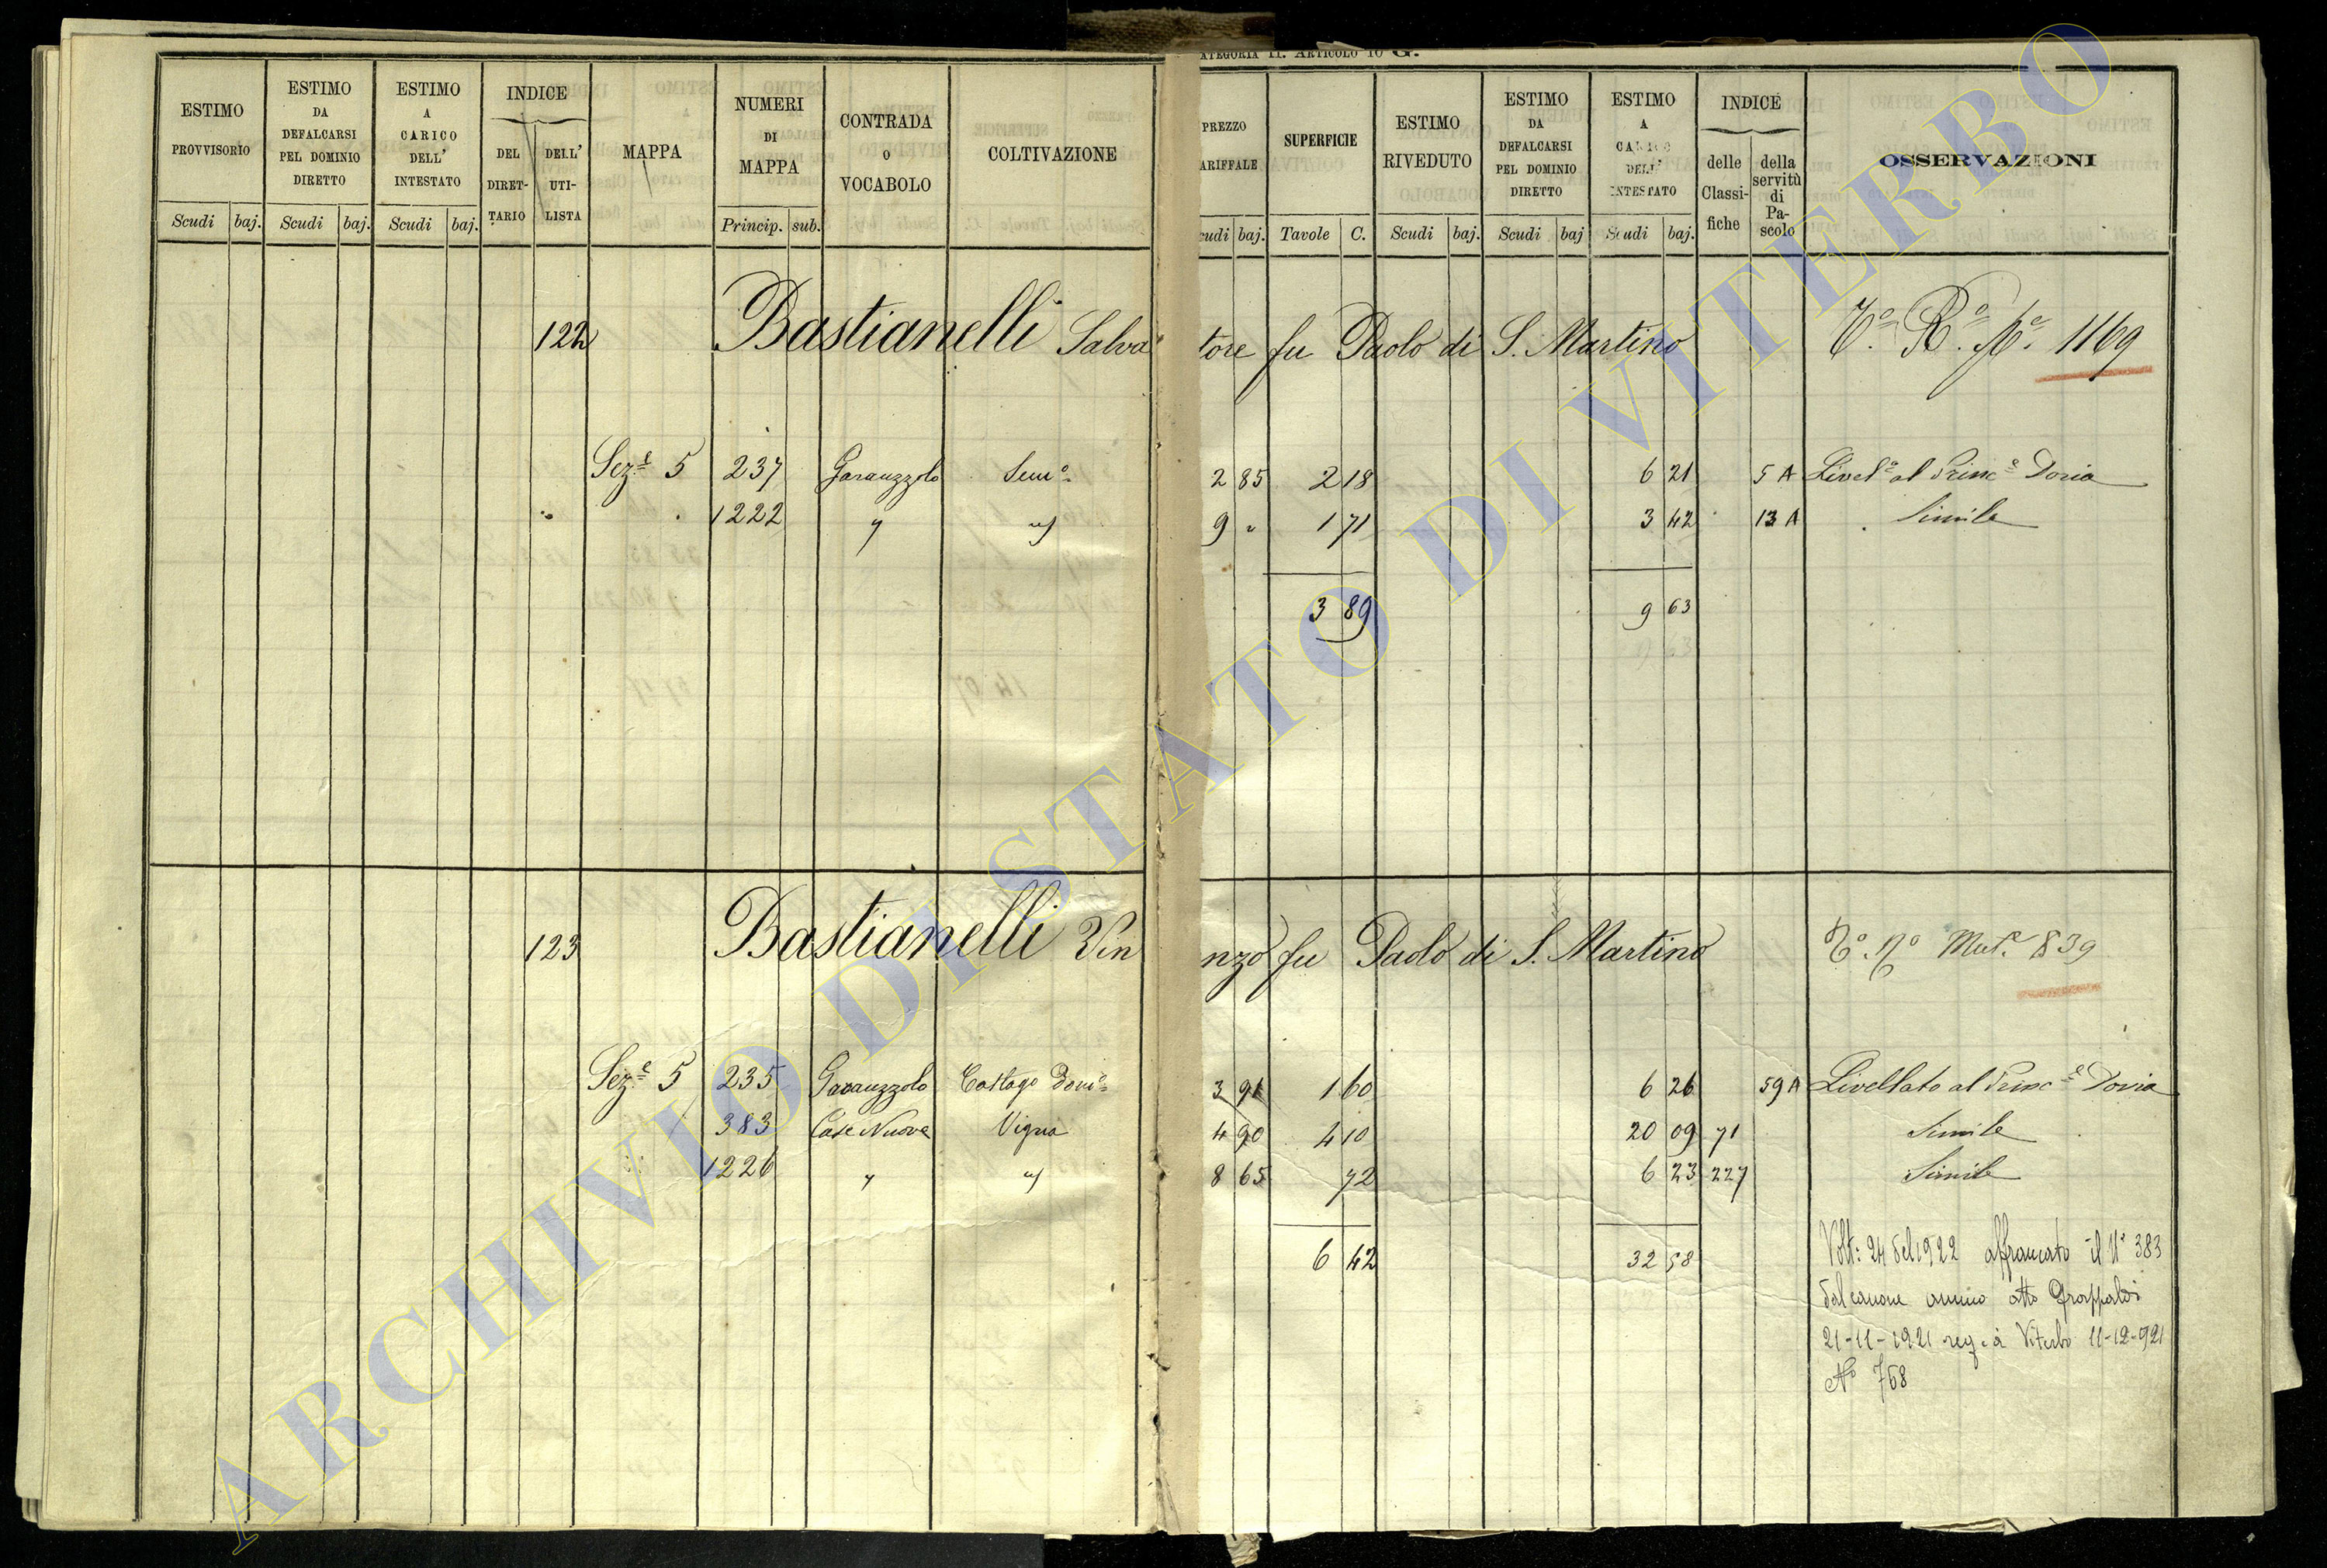 CATEGORIA II. ARTICOLO 10 G.
ESTIMO PROVVISORIO Scudi baj.
ESTIMO DA DEFALCARSI PEL DOMINIO DIRETTO Scudi baj.
ESTIMO A CARICO DELL' INTESTATO Scudi baj.
INDICE DEL DIRET- TARIO DELL' UTI- LISTA
MAPPA
NUMERI DI MAPPA Princip. sub.
CONTRADA O VOCABOLO
COLTIVAZIONE
PREZZO TARIFFALE Scudi baj.
SUPERFICIE Tavole C.
ESTIMO RIVEDUTO Scudi baj.
ESTIMO DA DEFALCARSI PEL DOMINIO DIRETTO Scudi baj
ESTIMO A CARICO DELL' INTESTATO Scudi baj.
INDICE delle Classi- fiche della servitù di Pa- scolo
OSSERVAZIONI
122 Bastianelli Salvatore fu Paolo di S. Martino 1169
Sez.e 5 237 Garauzzolo Sem.o 2 85 2 18 6 21 5 A Livel.o al Princ.e Doria
1222 " " 9 " 1 71 3 42 13 A Simile
3 89 9 63
123 Bastianelli Vin nzo fu Paolo di S. Martino Mut.e 839
Sez.e 5 235 Garauzzolo Castag.o Dom.o 3 91 1 60 6 26 59 A Livellato al Princ.e Doria
383 Case Nuove Vigna 4 90 4 10 20 09 71 Simile
1226 " " 8 65 72 6 23 227 Simile
6 42 32 58
Volt: 24 1922 affrancato il N° 383
dal canone annuo atto
21-11-1921 reg. a Viterbo 11-12-921
N° 768
ARCHIVIO DI STATO DI VITERBO